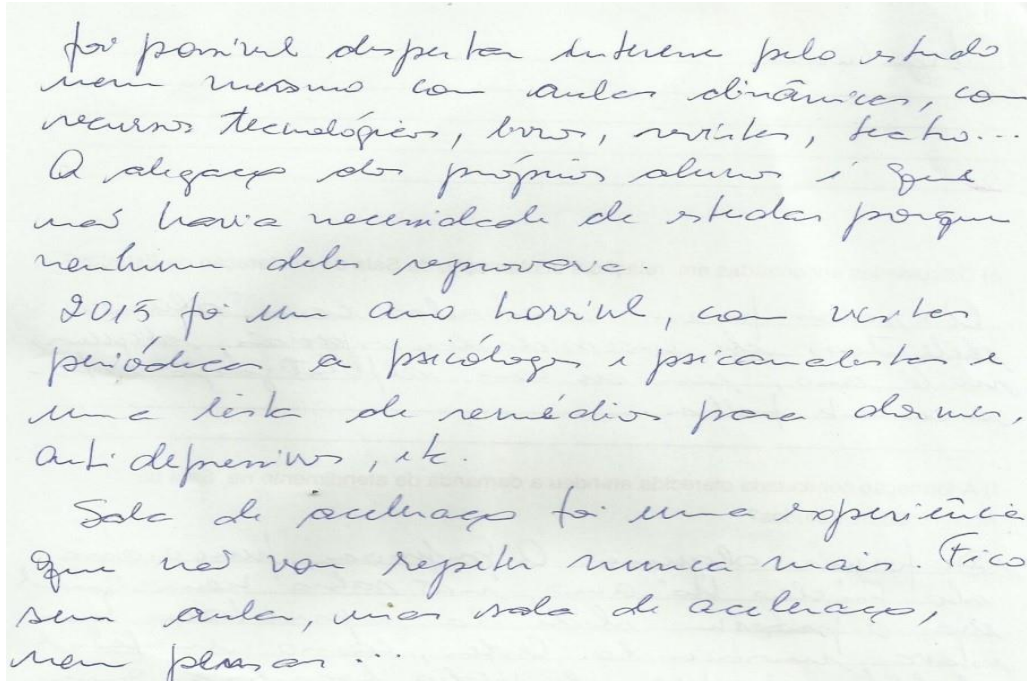 foi possível despertar interesse pelo estudo
nem mesmo com aulas dinâmicas, com
recursos tecnológicos, livros, revistas, teatro...
A alegação dos próprios alunos é que
não havia necessidade de estudar porque
nenhum deles reprovava
2015 foi um ano horrível, com visitas
periódicas a psicólogos e psicanalistas e
uma lista de remédios para dormir,
antidepressivos, etc.
Sala de aceleração foi uma experiência
que não vou repetir nunca mais. (Fico
sem aulas, mas sala de aceleração,
nem pensar...